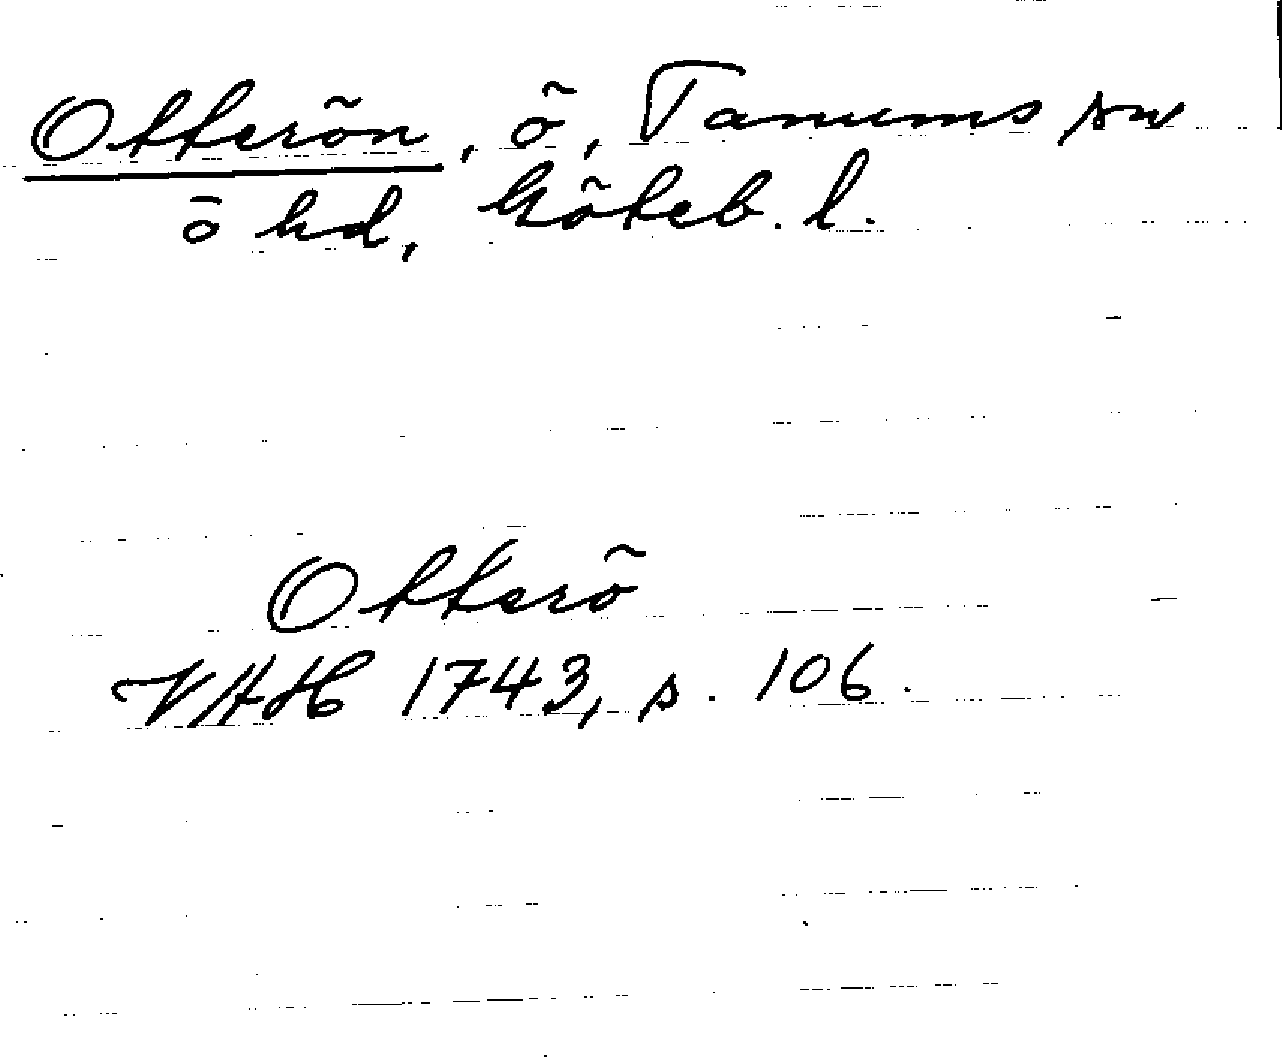 Otterön, ö, Tanums sn
o hd, Göteb. l.
Otterö
VAH 1743, s. 106.